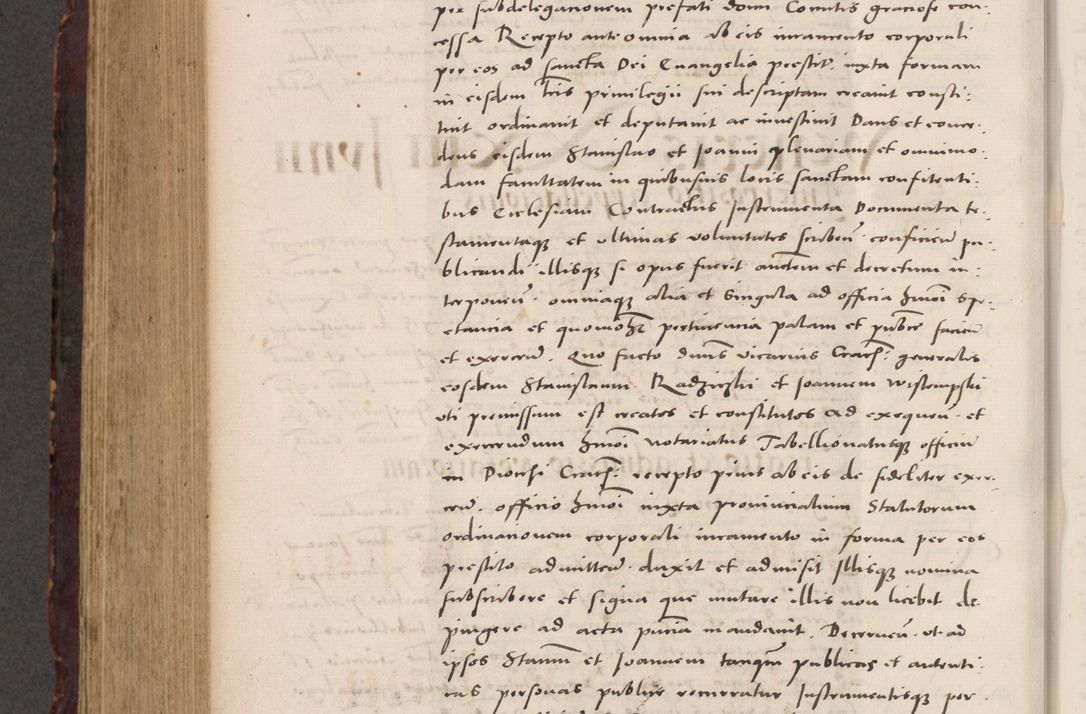 per subdelegacionem prefati domi Comitis graciose con-
cessa Recepto ante omnia ab eis iuramento corporali
per eos ad sancta Dei Euangelia prestit. iuxta formam
in eisdem lris priuilegii sui descriptam creauit consti-
tuit ordinauit et deputauit ac inuestiuit Dans et conce-
dens eisdem Stanislao et Joanni plenariam et omnimo-
dam facultatem in quibusuis locis sanctam confitenti-
bus Ecclesiam Contractus Instrumenta Documenta te-
stamentaq3 et ultimas voluntates scriben. conficien pu-
blicandi illisq3 si opus fuerit auctem et decretum in-
terponen. omniaq3 alia et singula ad officia hmoi spe-
ctancia et quomolz pertinencia palam et pubce facien
et exercen. Quo facto dnus vicarius Crac. generalis
eosdem Stanislaum Radzirski et Joannem Wistempski
uti premissum est creatos et constitutos ad exequen. et
exercendum hmoi notariatus Tabellionatusq3 officiu
in Diocesi Crac. recepto prius ab eis de fideliter exer-
cen. officio hmoi iuxta prouincialium Statutorum
ordinacionem corporali iuramento in forma per eos
prestito admitten. duxit et admisit Illisq3 nomina
subscribere et signa que mutare illis non licebit de-
pingere ad acta pncia mandauit. Decernen. ut ad
ipsos Stanm et Joannem tanquam publicas et autenti-
cas personas publice recurratur Instrumentisq3 per